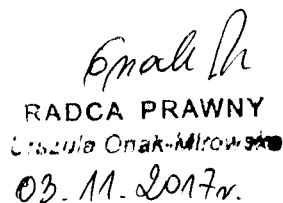 RADCA PRAWNY
Urszula Onak-Mirowska
03.11.2017r.